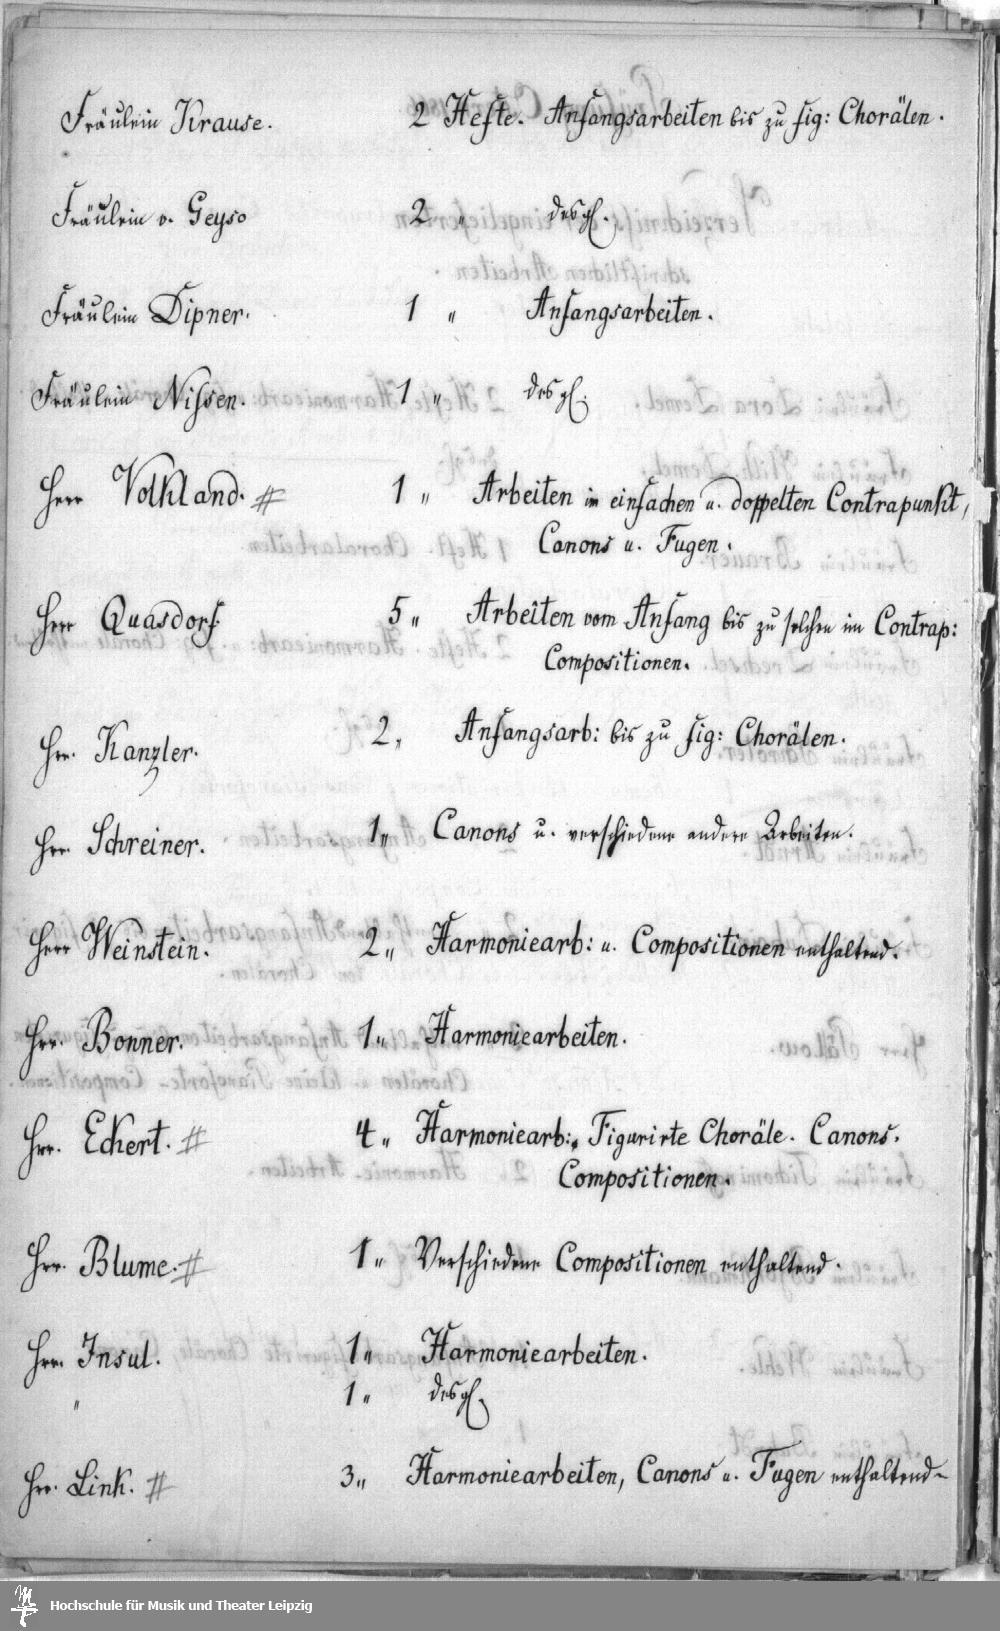 Fräulein Krause. 2 Hefte. Anfangsarbeiten bis zu fig: Chorälen.
Fräulein v. Geyso 2 " desgl.
Fräulein Dipner. 1 " Anfangsarbeiten.
Fräulein Nissen. 1 " desgl.
Herr Volkland. # 1 " Arbeiten in einfachen u. doppelten Contrapunkt,
Canons u. Fugen.
Herr Quasdorf. 5 " Arbeiten vom Anfang bis zu solchen im Contrap:
Compositionen.
Hrr. Kanzler. 2 " Anfangsarb: bis zu fig: Chorälen.
Hrr. Schreiner. 1 " Canons u. verschiedene andere Arbeiten.
Herr Weinstein. 2 " Harmoniearb: u. Compositionen enthaltend.
Hrr. Bonner. 1 " Harmoniearbeiten.
Hrr. Eckert. # 4 " Harmoniearb: Figurirte Choräle. Canons.
Compositionen.
Hrr. Blume. # 1 " Verschiedene Compositionen enthaltend.
Hrr. Insul. 1 " Harmoniearbeiten.
" 1 " desgl.
Hrr. Link. # 3 " Harmoniearbeiten, Canons u. Fugen enthaltend
Hochschule für Musik und Theater Leipzig